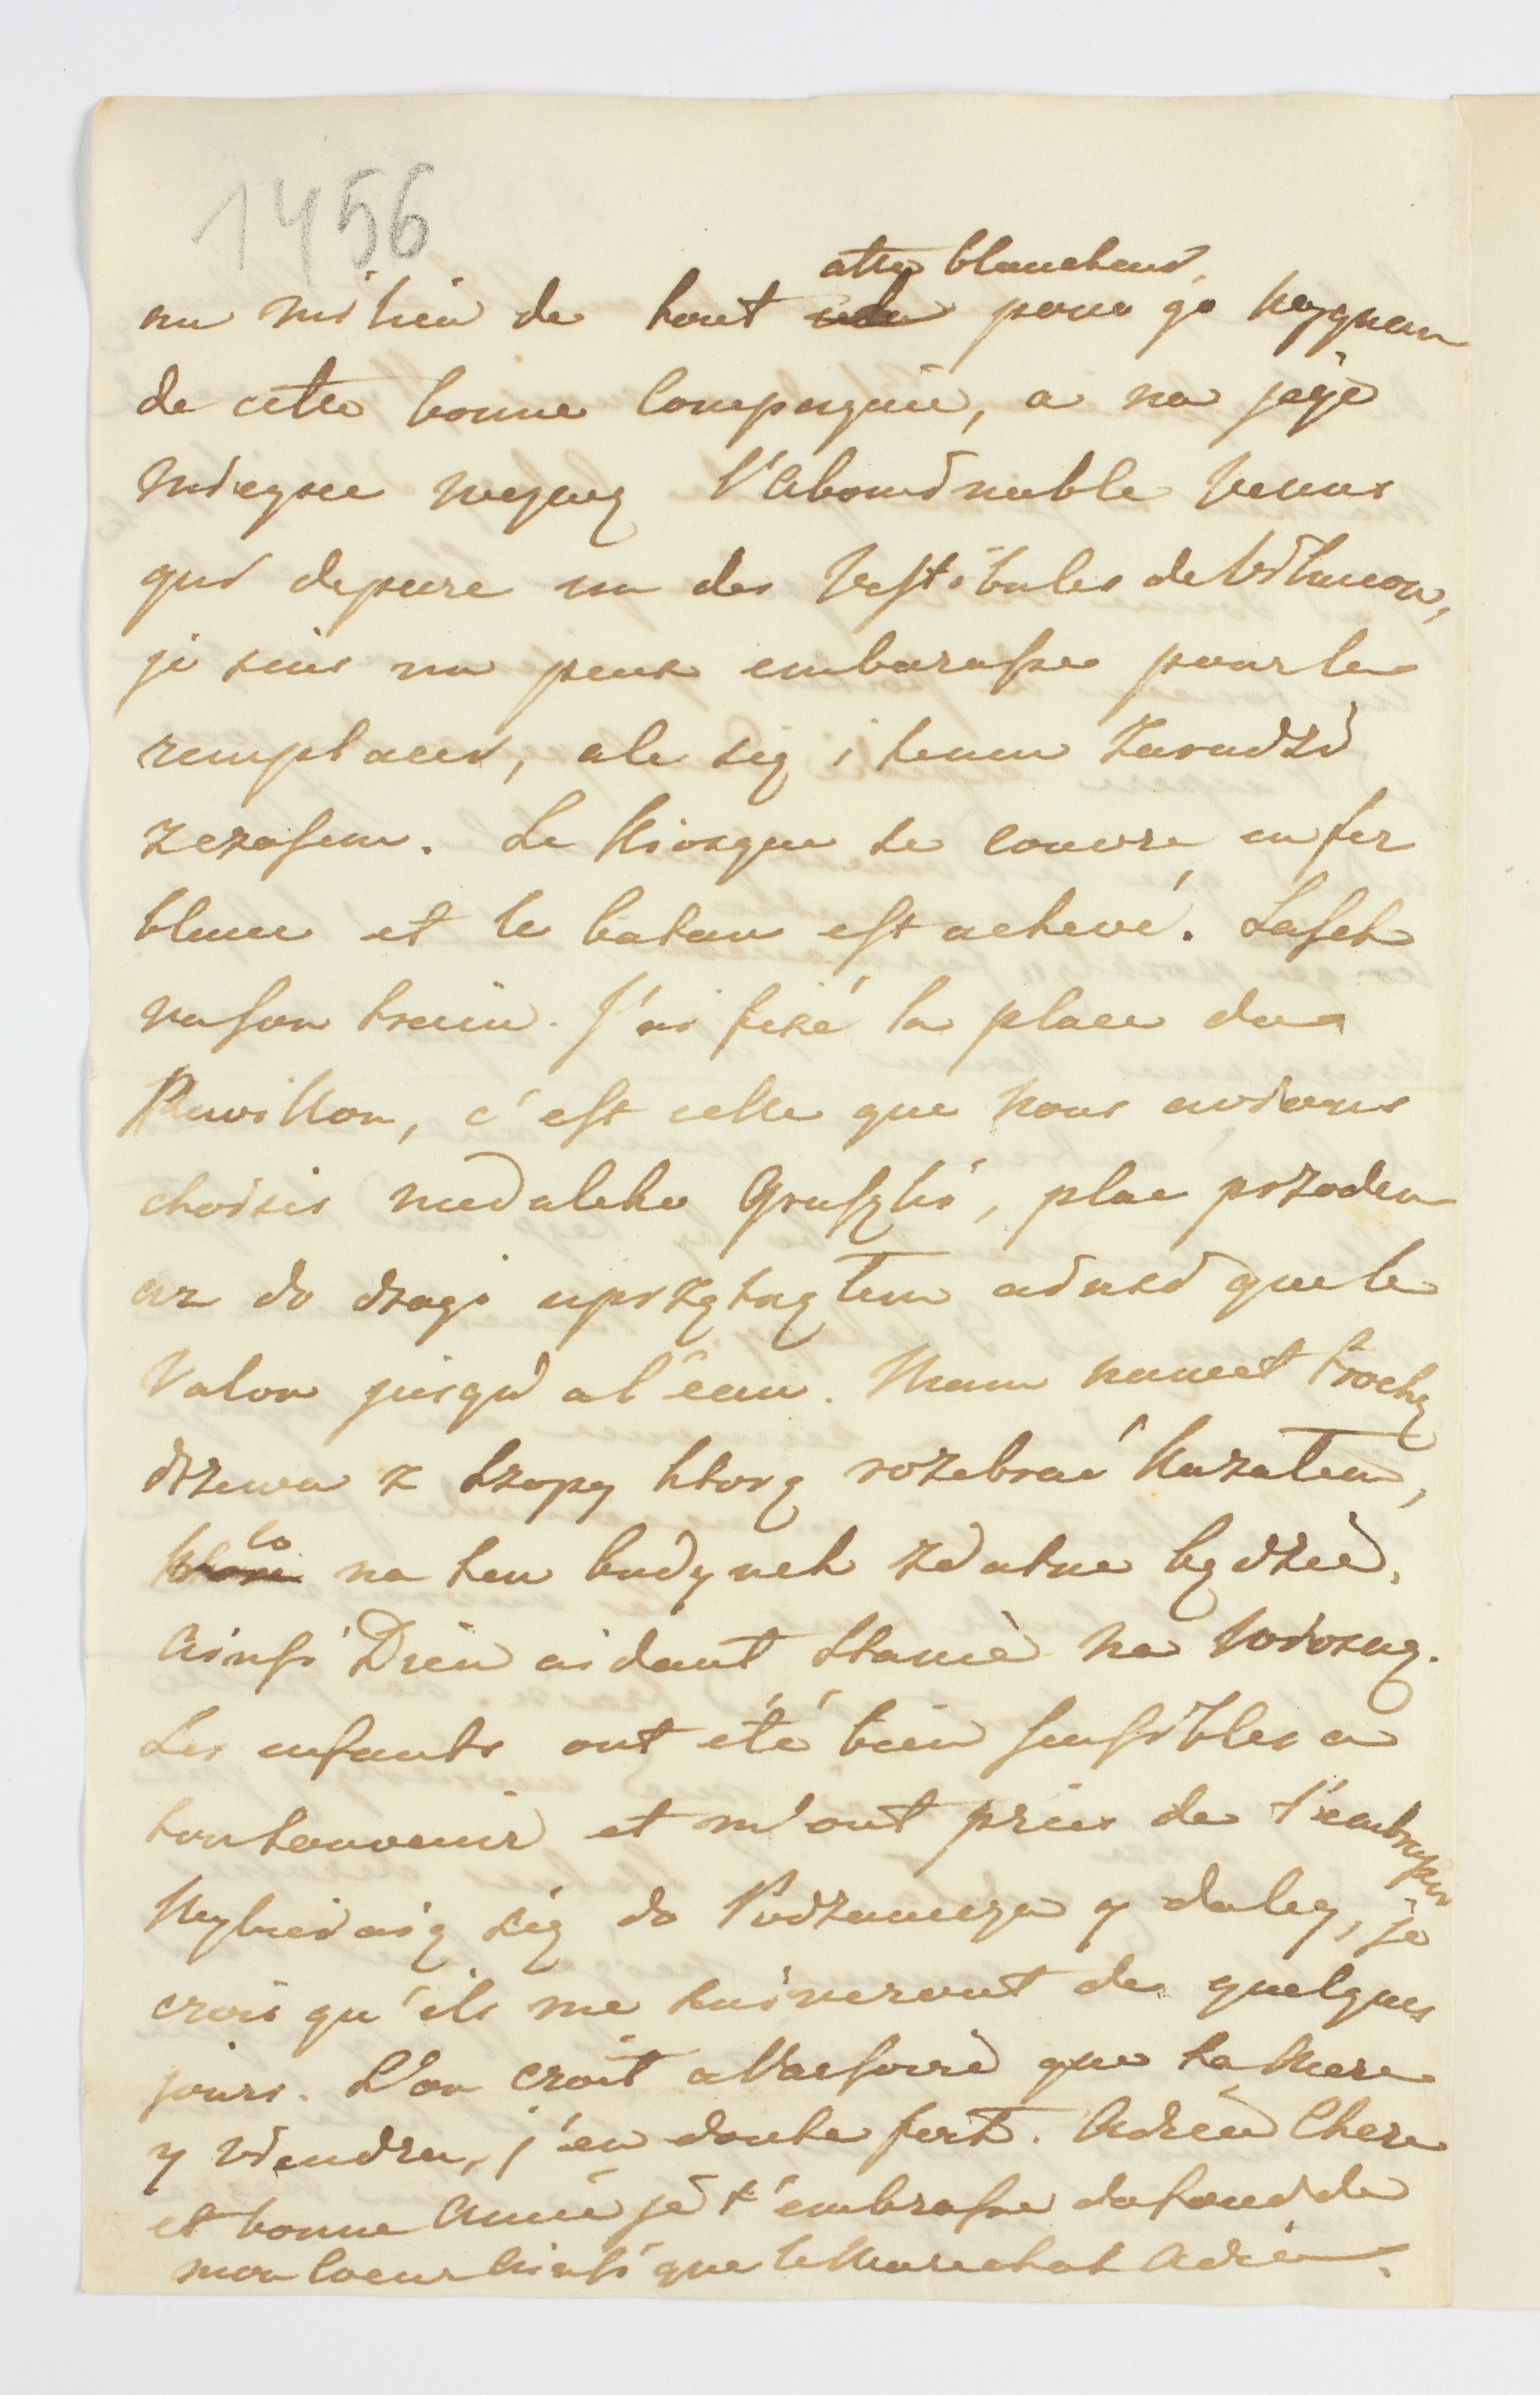 1456
cette blancheur,
au milieu de tout cela pour go
de cette bonne Compagnie, a na jeÿe
mieysce l'abominable Venus
qui depare un des Vestibules de Wilanow,
je suis un peux embarasse pour le
remplacer, ale się i temu zaradzi
zczasem. Le Kiosque se couvre en fer
blanc et le batau est achevé. Lasek
va son train. J'ai fixé la place du
Pawillon, c'est celle que nous avions
choisis niedaleko Gruszki, plac przodem
az do drogi uprzątnąłem ainsi que le
Valon jusqu'a l'eau. Mam nawet trochę
drzewa z szopy ktorą rozebrać kazałem,
ktore co na ten budynek zdatne będzie,
Ainsi Dieu aidant stanie na wiosnę.
Les enfants ont été bien sensibles a
ton souvenir et m'ont priés de t'embrasser
Wybieraią się do Podzamcza y daley, je
crois qu'ils me suiveront de quelques
jours. L'on croit a Varsovie que ta Mere
y viendra, j'en doute fort. Adieu Chere
et bonne Amie je t'embrasse du fond de
mon Coeur Ainsi que le Marechal Adieu.